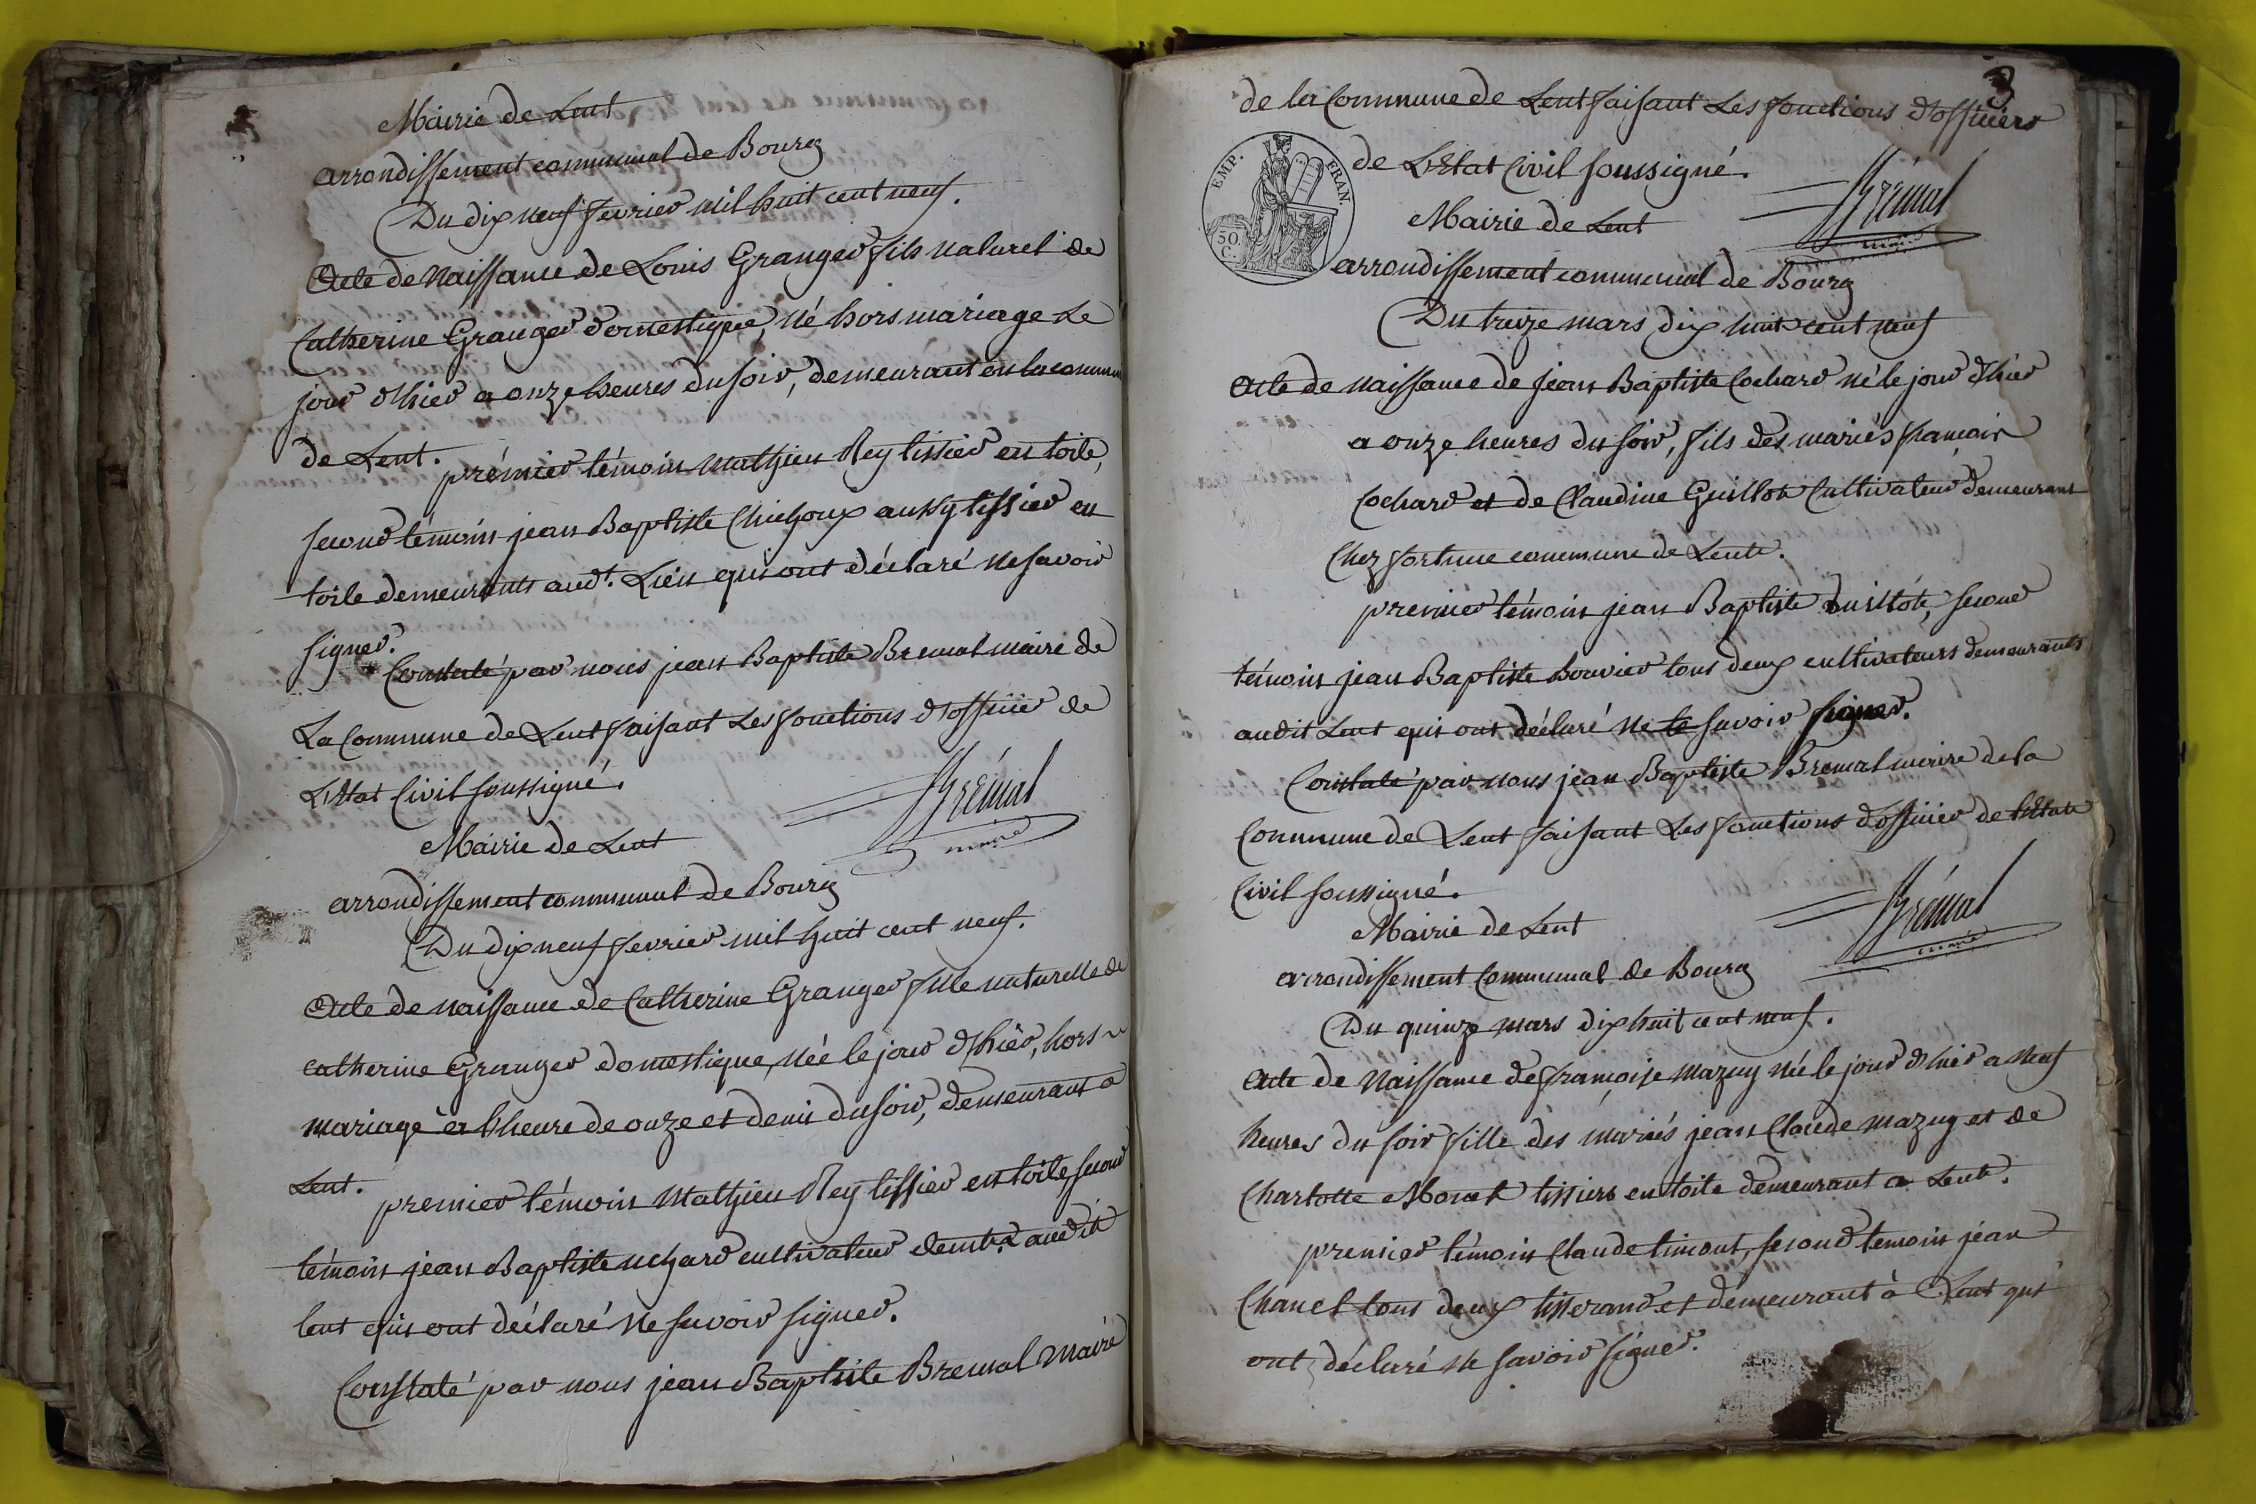 Mairie de Lent
arrondissement communal de Bourg
Du dix neuf fevrier mil huit cent neuf.
Acte de Naissance de Louis Granger fils naturel de
Catherine Granger domestique, né hors mariage Le
jour d'hier a onze heures du soir, demeurant en la commune
de Lent.
prémier témoin Mathieu Rey tissier en toile,
second témoin jean Baptiste Chichoux aussy tissier en
toile demeurants aud.t Lieu qui ont déclaré ne savoir
signer.
Constaté par nous jean Baptiste Bremal maire de
La Commune de Lent faisant Les fonctions d'officier de
L'Etat Civil soussigné.
Brémal
maire
Mairie de Lent
arrondissement communal de Bourg
Du dix neuf fevrier mil huit cent neuf.
Acte de naissance de Catherine Granger fille naturelle de
catherine Granger domestique, née le jour d'hier, hors
mariage et lheure de onze et demi du soir, demeurant a
Lent.
premier témoin Mathieu Rey tissier en toile, second
témoin jean Baptiste uchard cultivateur demt. audit
lent qui ont déclaré ne savoir signer.
Constaté par nous jean Baptiste Bremal Maire
3
de la Commune de Lent faisant Les fonctions d'officiers
EMP. FRAN.
50. C.
de L'Etat Civil soussigné.
Brémal
maire
Mairie de Lent
arrondissement communal de Bourg
Du treize mars dix huit cent neuf
Acte de naissance de jean Baptiste Cochard né le jour d'hier
a onze heures du soir, fils des mariés francois
Cochard et de Claudine Guillot Cultivateur demeurant
Chez fortune commune de Lent.
premier témoin jean Baptiste, second
témoin jean Baptiste Bouvier tous deux cultivateurs demeurants
audit Lent qui ont déclaré ne le savoir signer.
Constaté par nous jean Baptiste Bremal maire de la
Commune de Lent faisant Les fonctions d'officier de l'Etat
Civil soussigné.
Brémal
maire
Mairie de Lent
arrondissement Communal de Bourg
Du quinze mars dix huit cent neuf.
Acte de Naissance de françoise Mazuy né le jour d'hier a neuf
heures du soir fille des mariés jean Claude mazuy et de
Charlotte Moret tissiers en toile demeurant a Lent.
premier témoin Claude timont, second temoin jéan
Chanel tous deux tisserand et demeurant à Lent qui
ont déclaré ne savoir signer.